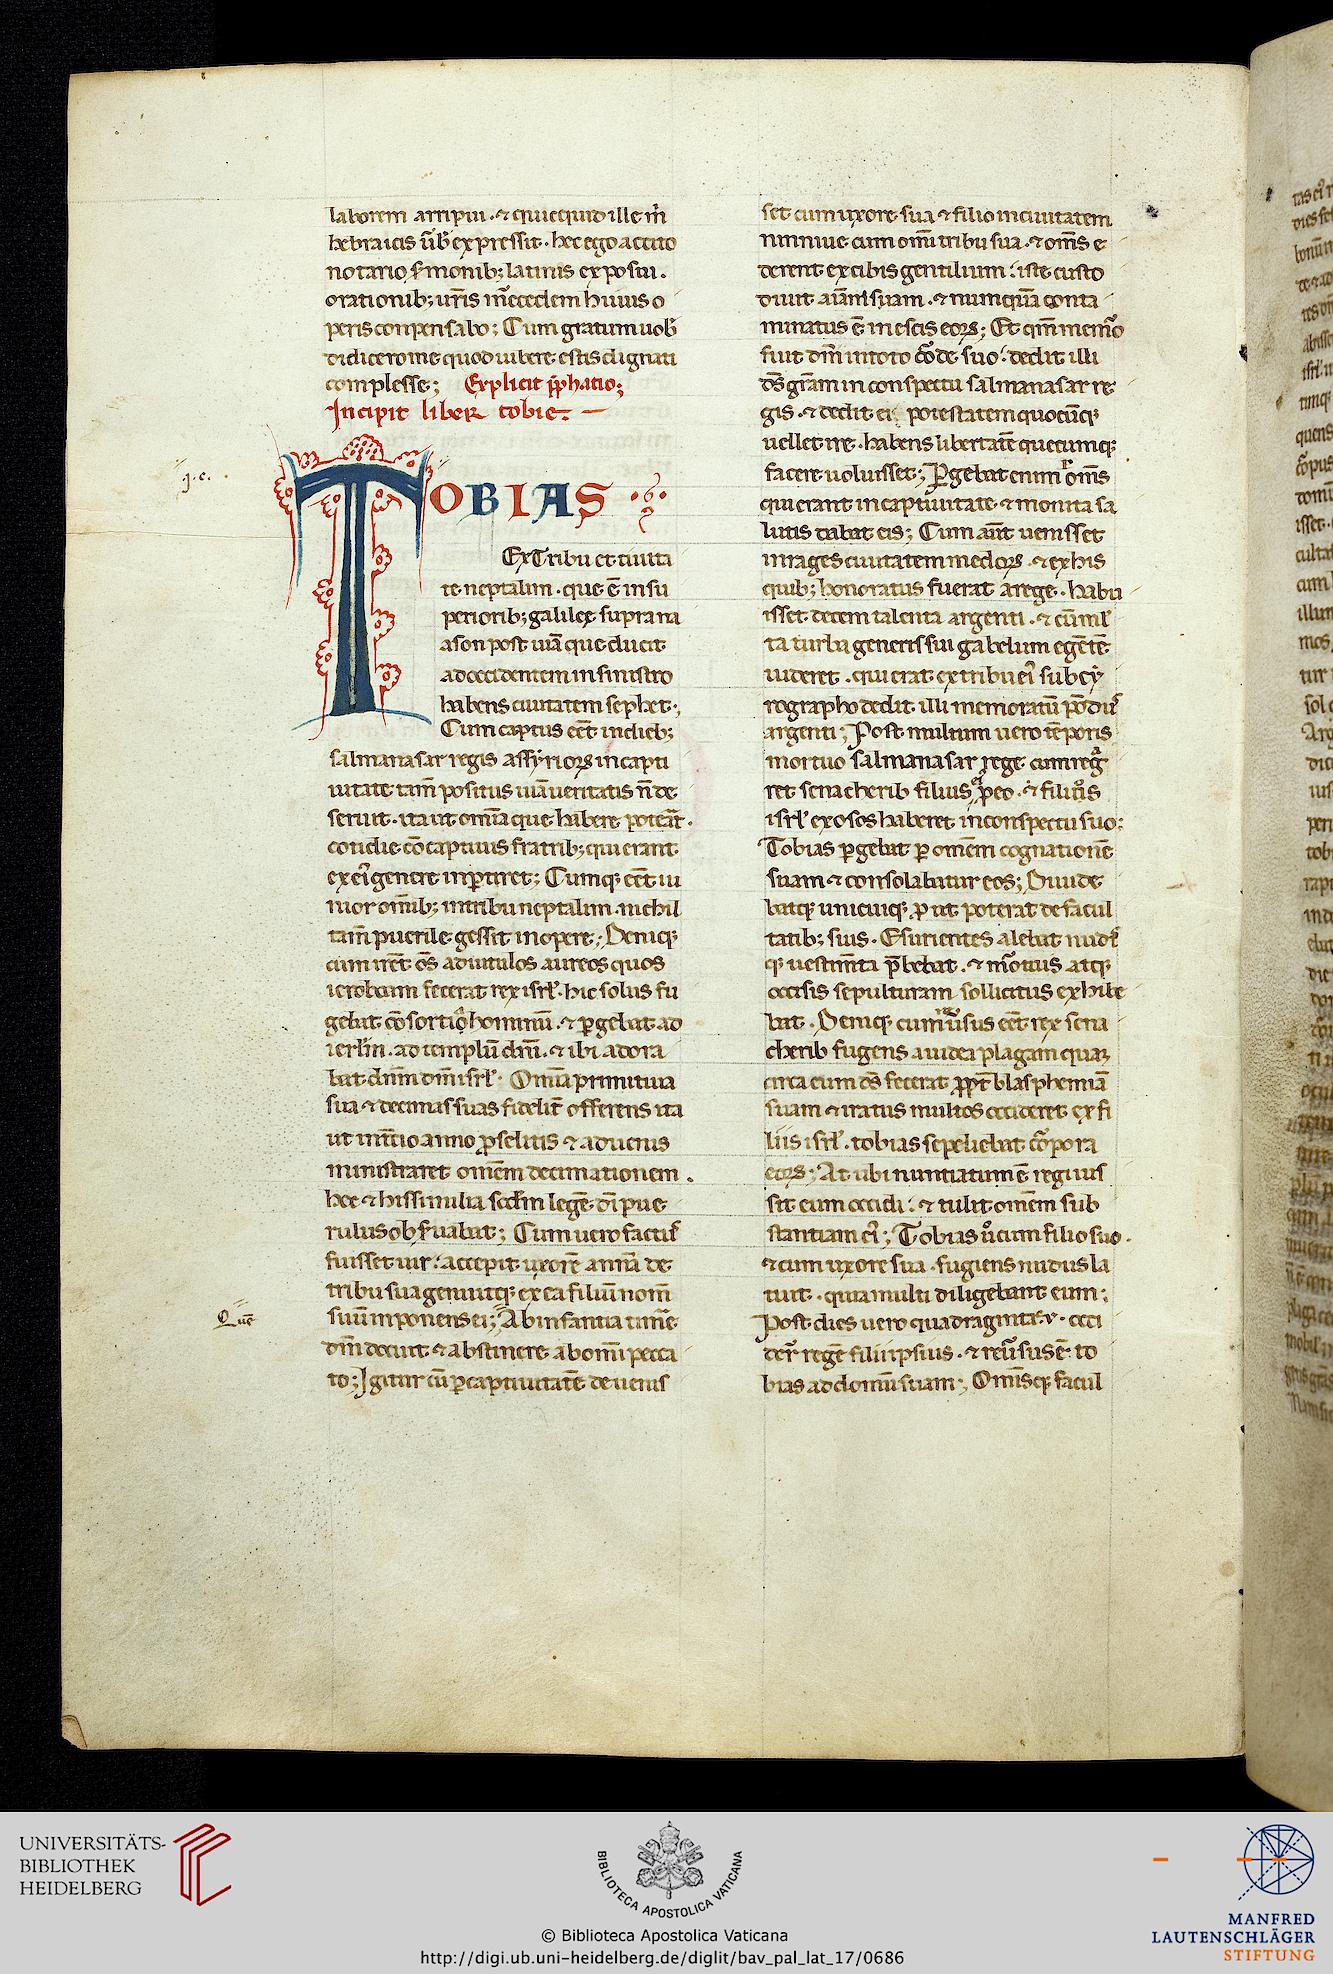 laborem arripui · ⁊ quicquid ille m̄
hebraicis ūb̄ expressit · hec ego accito
notario s̄monib; latinis exposui .
orationib; ur̄is m̄cedem huius o
peris conpensabo ; Cum gratum uob̄
didicero me quod iubere estis dignati
complesse ; Explicit p̄phatio ;
Incipit liber tobie .
j . c .
TOBIAS
Ex Tribu et ciuita
te neptalim . que ē in su
periorib; galileę supra na
ason post uiā que ducit
ad occidentem in sinistro
habens ciuitatem sephet ;
Cum captus eēt in dieb;
salmanasar regis assyrioꝝ in capti
uitate tam̄ positus uiā ueritatis ñ de
seruit · ita ut om̄ia que habere poterat̄ .
cotidie cō captiuis fratrib; qui erant
ex ei᷒ genere inꝑtiret ; Cumq; eēt iu
nior om̄ib; in tribu neptalim . nichil
tam̄ puerile gessit in opere ; Deniq;
cum irēt oms̄ ad uitulos aureos quos
ieroboam fecerat rex isrł . hic solus fu
giebat cōsortiā hominū . ⁊ ꝑgebat ad
ierl̄m . ad templū dn̄i . ⁊ ibi adora
bat dn̄m dm̄ isrł . Om̄ia primitiua
sua ⁊ decimas suas fidelit̄ offerens ita
ut in t̄cio anno ꝓselitis ⁊ aduenis
ministraret omēm decimationem .
hec ⁊ his similia scd̄m legē dī pue
rulus obs̄uabat ; Cum uero fact᷒
fuisset uir : accepit uxorē annā de
tribu sua genuitq; ex ea filiū nom̄
Quē
suū inponens ei ; Ab infantia timē
dm̄ docuit ⁊ abstinere ab om̄i pecca
to ; Igitur cū ꝑ captiuitatē deuenis
set cum uxore sua ⁊ filio in ciuitatem
niniue cum om̄i tribu sua · ⁊ om̄s e
derent ex cibis gentilium : iste custo
diuit aīam suam . ⁊ numquā conta
minatus ē in escis eoꝝ ; Et qm̄ memor
fuit dn̄i in toto corde suo : dedit illi
ds̄ grām in conspectu salmanasar re
gis . ⁊ dedit ei potestatem quocūq;
uellet ire . habens libertatē quecumq;
facere uoluisset ; Pergebat enim ad om̄s
qui erant in captiuitate ⁊ monita sa
lutis dabat eis ; Cum aūt uenisset
in rages ciuitatem medoꝝ . ⁊ ex his
quib; honoratus fuerat a rege . habu
isset decem talenta argenti . ⁊ cū mł
ta turba generis sui gabelum egētē
uideret . qui erat ex tribu ei᷒ sub cy
rographo dedit illi memoratū pond᷒
argenti ; Post multum uero tēporis
mortuo salmanasar rege cum regna
ret senacherib filius ꝑ eo . ⁊ filios
isrł exosos haberet in conspectu suo :
Tobias ꝑgebat ꝑ omēm cognationē
suam ⁊ consolabatur eos ; Diuide
batq; unicuiq; ꝓ ut poterat de facul
tatib; suis . Esurientes alebat nudis
q; uestim̄ta p̄bebat . ⁊ mortuis atq;
occisis sepulturam sollicitus exhibe
bat . Deniq; cum reūsus eēt rex sena
cherib fugiens a iudea plagam quaꝫ
circa eum ds̄ fecerat ꝓpt̄ blasphemiā
suam ⁊ iratus multos occideret ex fi
liis isrł . tobias sepeliebat corpora
eoꝝ ; At ubi nuntiatum ē regi ius
sit eum occidi : ⁊ tulit omēm sub
stantiam ei᷒ ; Tobias ū cum filio suo .
⁊ cum uxore sua . fugiens nudus la
tuit . quia multi diligebant eum ;
Post dies uero quadraginta . v . occi
der̄ regē filii ipsius . ⁊ reūsus ē to
bias ad domū suam ; Om̄isq; facul
UNIVERSITÄTS-
BIBLIOTHEK
HEIDELBERG
BIBLIOTECA APOSTOLICA VATICANA
© Biblioteca Apostolica Vaticana
http://digi.ub.uni-heidelberg.de/diglit/bav_pal_lat_17/0686
MANFRED
LAUTENSCHLÄGER
STIFTUNG